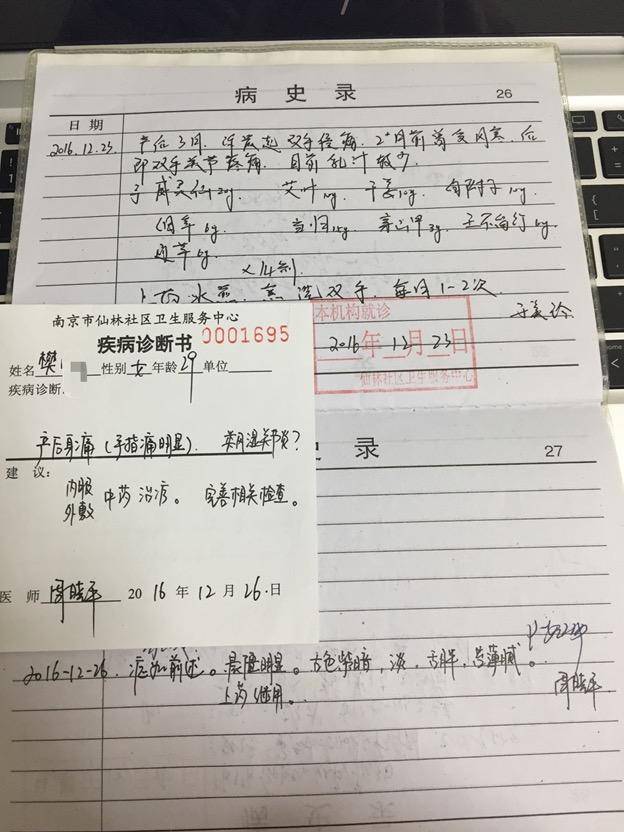 病 史 录
26
日 期
2016.12.23 产后3月. 伴发起双手指痛. 2+月前曾受风寒, 后
即双手关节疼痛. 目前乳汁较少.
予 威灵仙20g 艾叶10g. 干姜10g. 制附子10g.
细辛6g 当归15g. 穿山甲3g. 王不留行10g.
通草6g
×14剂
上药水煎. 熏洗双手. 每日1-2次
本机构就诊
2016年12月23日
仙林社区卫生服务中心
南京市仙林社区卫生服务中心
疾病诊断书 0001695
姓名 樊 性别 女 年龄 29 单位
疾病诊断.
产后身痛 (手指痛明显). 类风湿关节炎?
建 议:
内服
外敷 中药治疗。 完善相关检查。
医 师 周晓平 2016 年 12 月 26 日
史 录
27
2016-12-26. 症如前述。晨僵明显。舌色紫暗, 淡, 舌胖, 苔薄腻。
上药继用。
周晓平